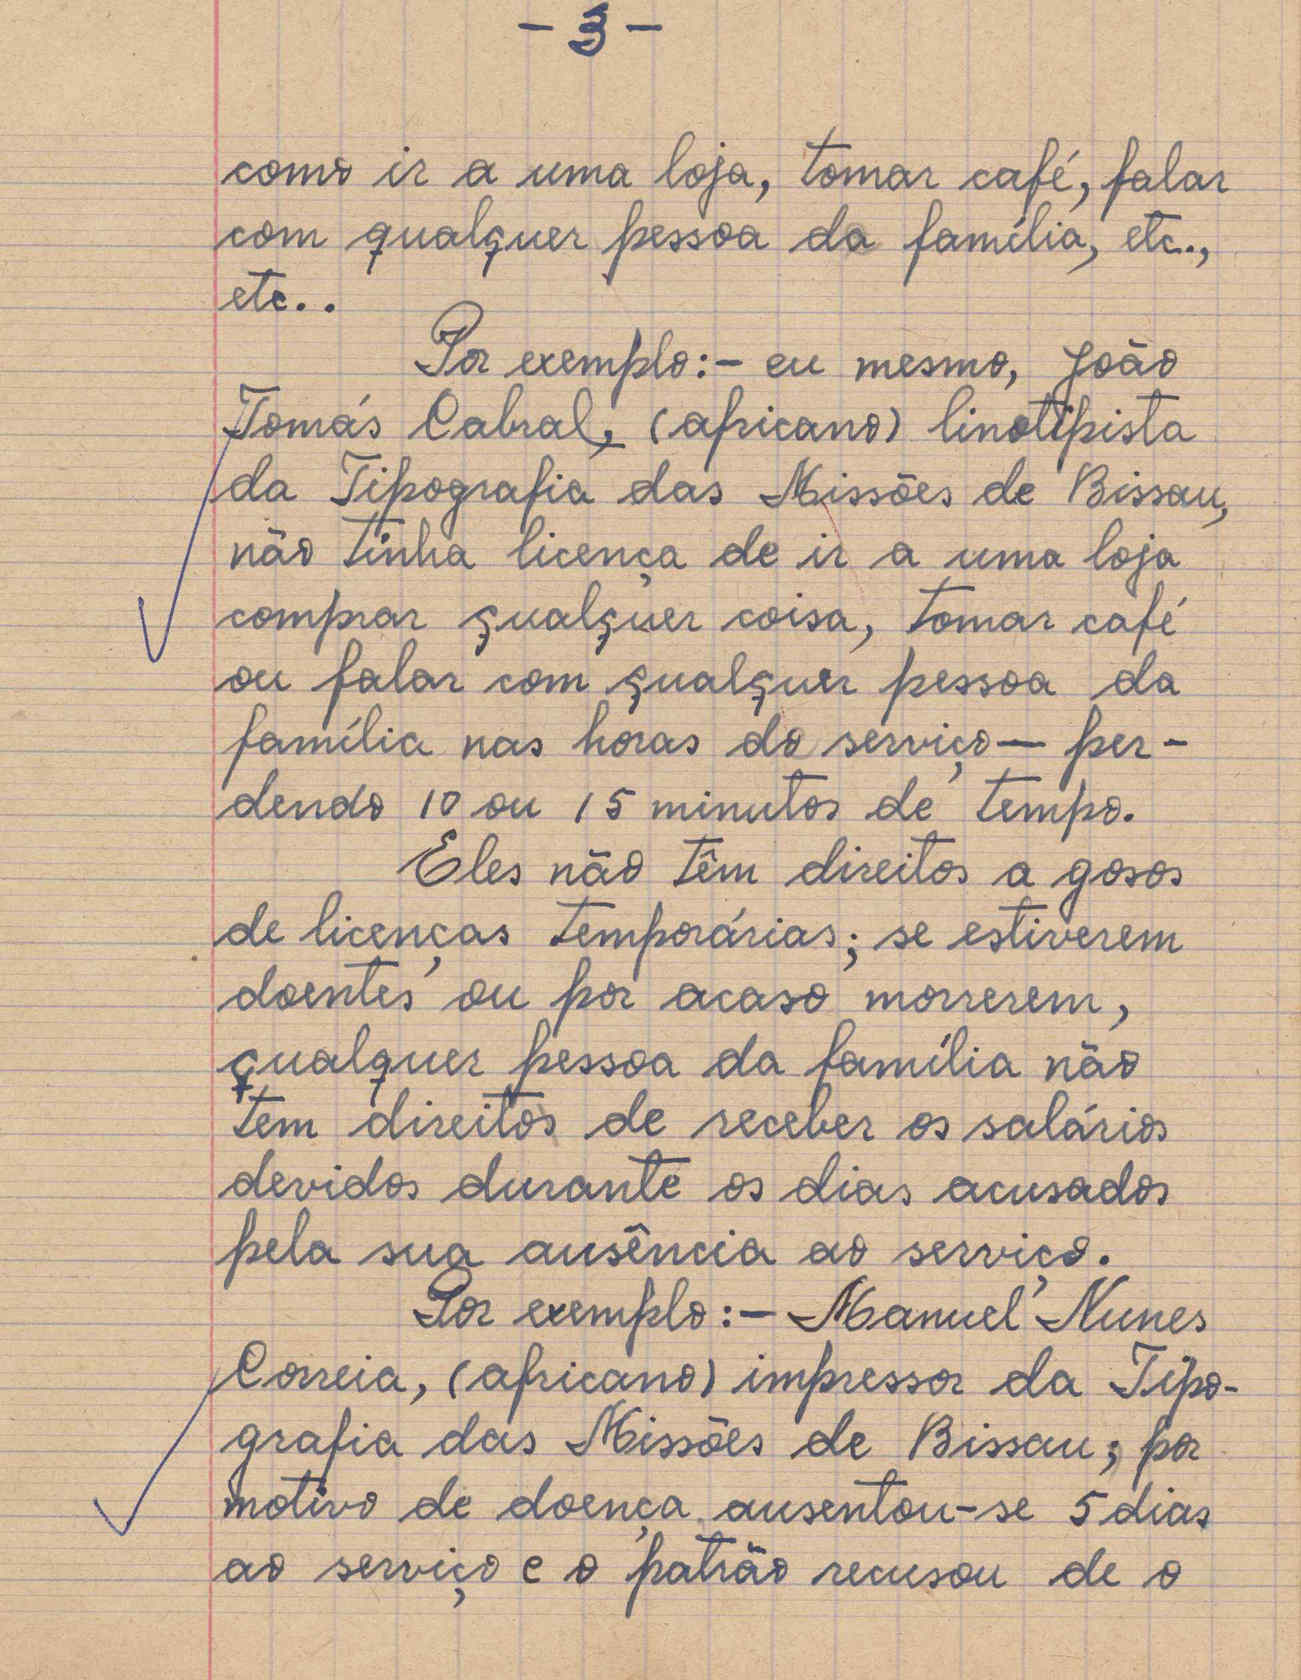 - 3 -
como ir a uma loja, tomar café, falar
com qualquer pessoa da família, etc.,
etc..
Por exemplo:- eu mesmo, João
Tomás Cabral, (africano) linotipista
da Tipografia das Missões de Bissau,
não tinha licença de ir a uma loja
comprar qualquer coisa, tomar café
ou falar com qualquer pessoa da
família nas horas do serviço — per-
dendo 10 ou 15 minutos de tempo.
Eles não têm direitos a gosos
de licenças temporárias; se estiverem
doentes ou por acaso morrerem,
qualquer pessoa da família não
tem direitos de receber os salários
devidos durante os dias acusados
pela sua ausência ao serviço.
Por exemplo:- Manuel Nunes
Correia, (africano) impressor da Tipo-
grafia das Missões de Bissau; por
motivo de doença ausentou-se 5 dias
ao serviço e o patrão recusou de o